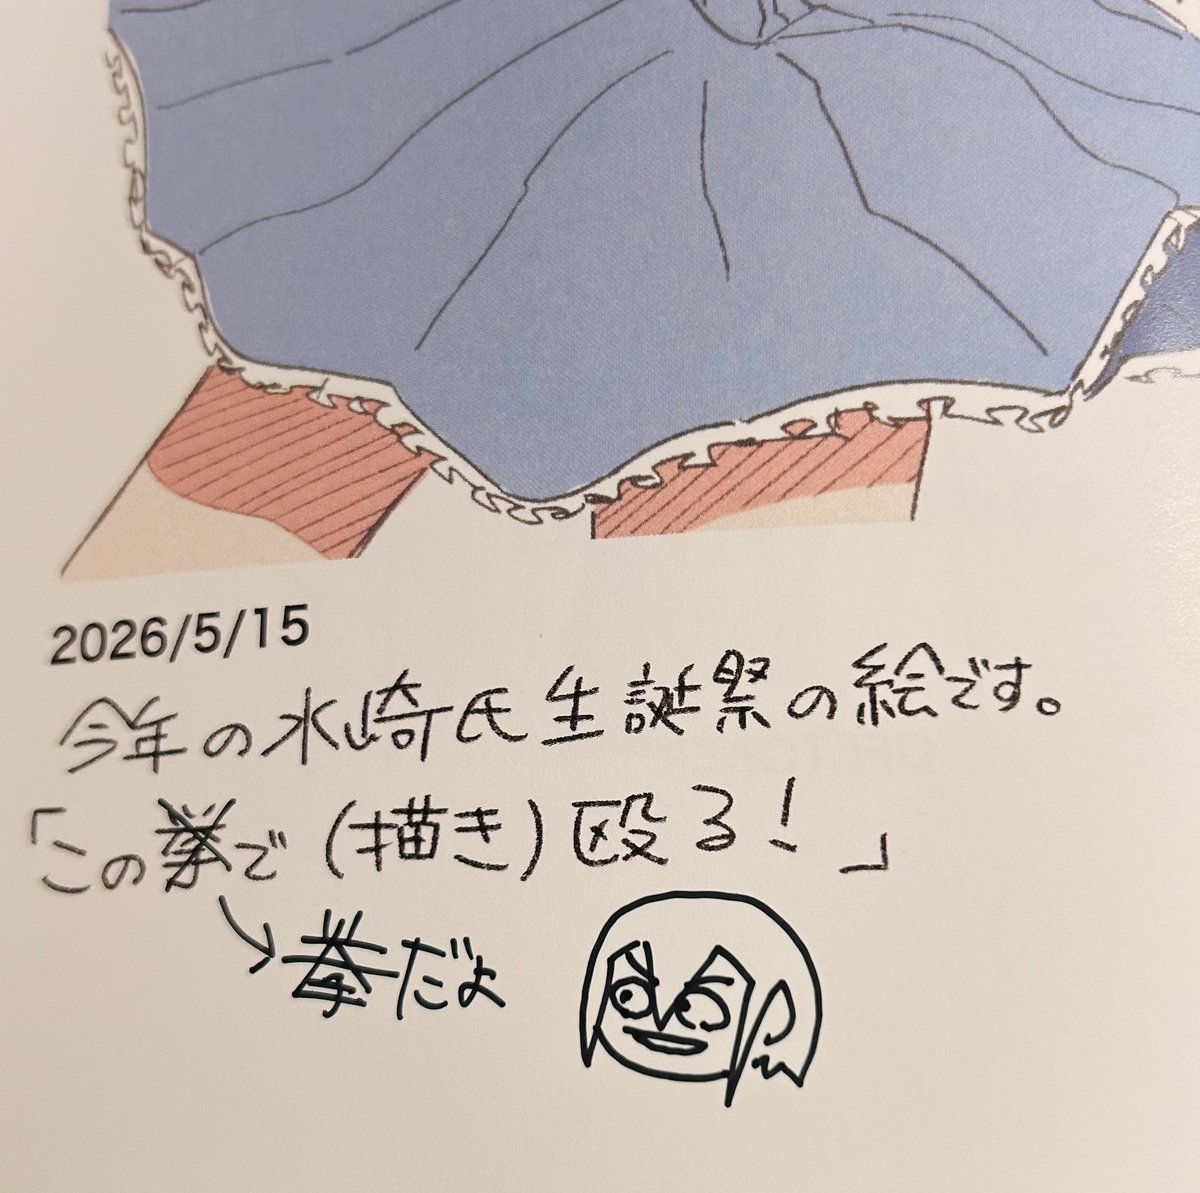 2026/5/15
今年の水崎氏生誕祭の絵です。
「この挙で(描き)殴る!」
→拳だよ